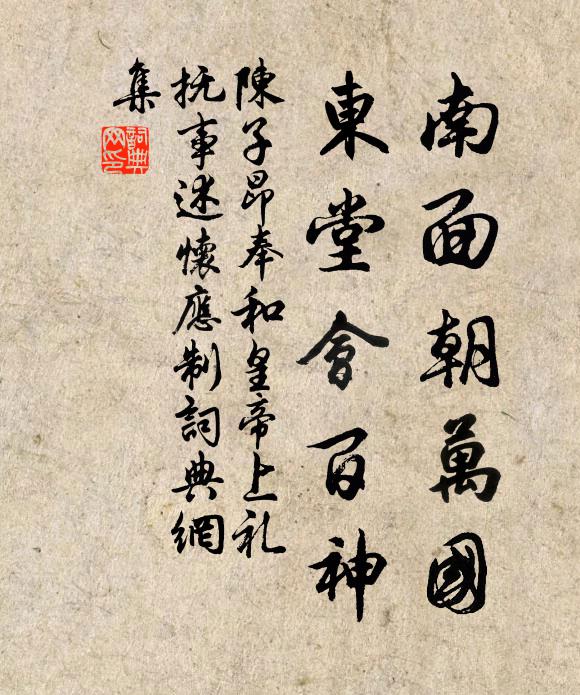 南面朝萬國
東堂會百神
陳子昂奉和皇帝上礼
抚事述懷應制詞典網
集
詞典
网印